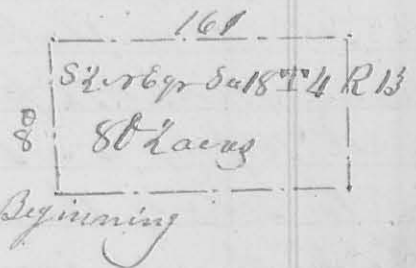 161
S½ NEqr Sec 18 T 4 R 13
80
80½ acres
Beginning